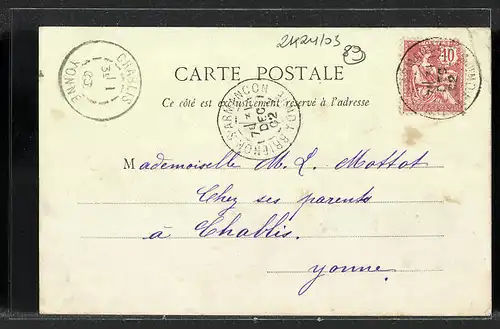 2424/03
89
CHABLIS
YONNE
CARTE POSTALE
Ce côté est exclusivement réservé à l'adresse
DEC
02
10
Mademoiselle M. L. Mottot
Chez ses parents
à Chablis.
Yonne.